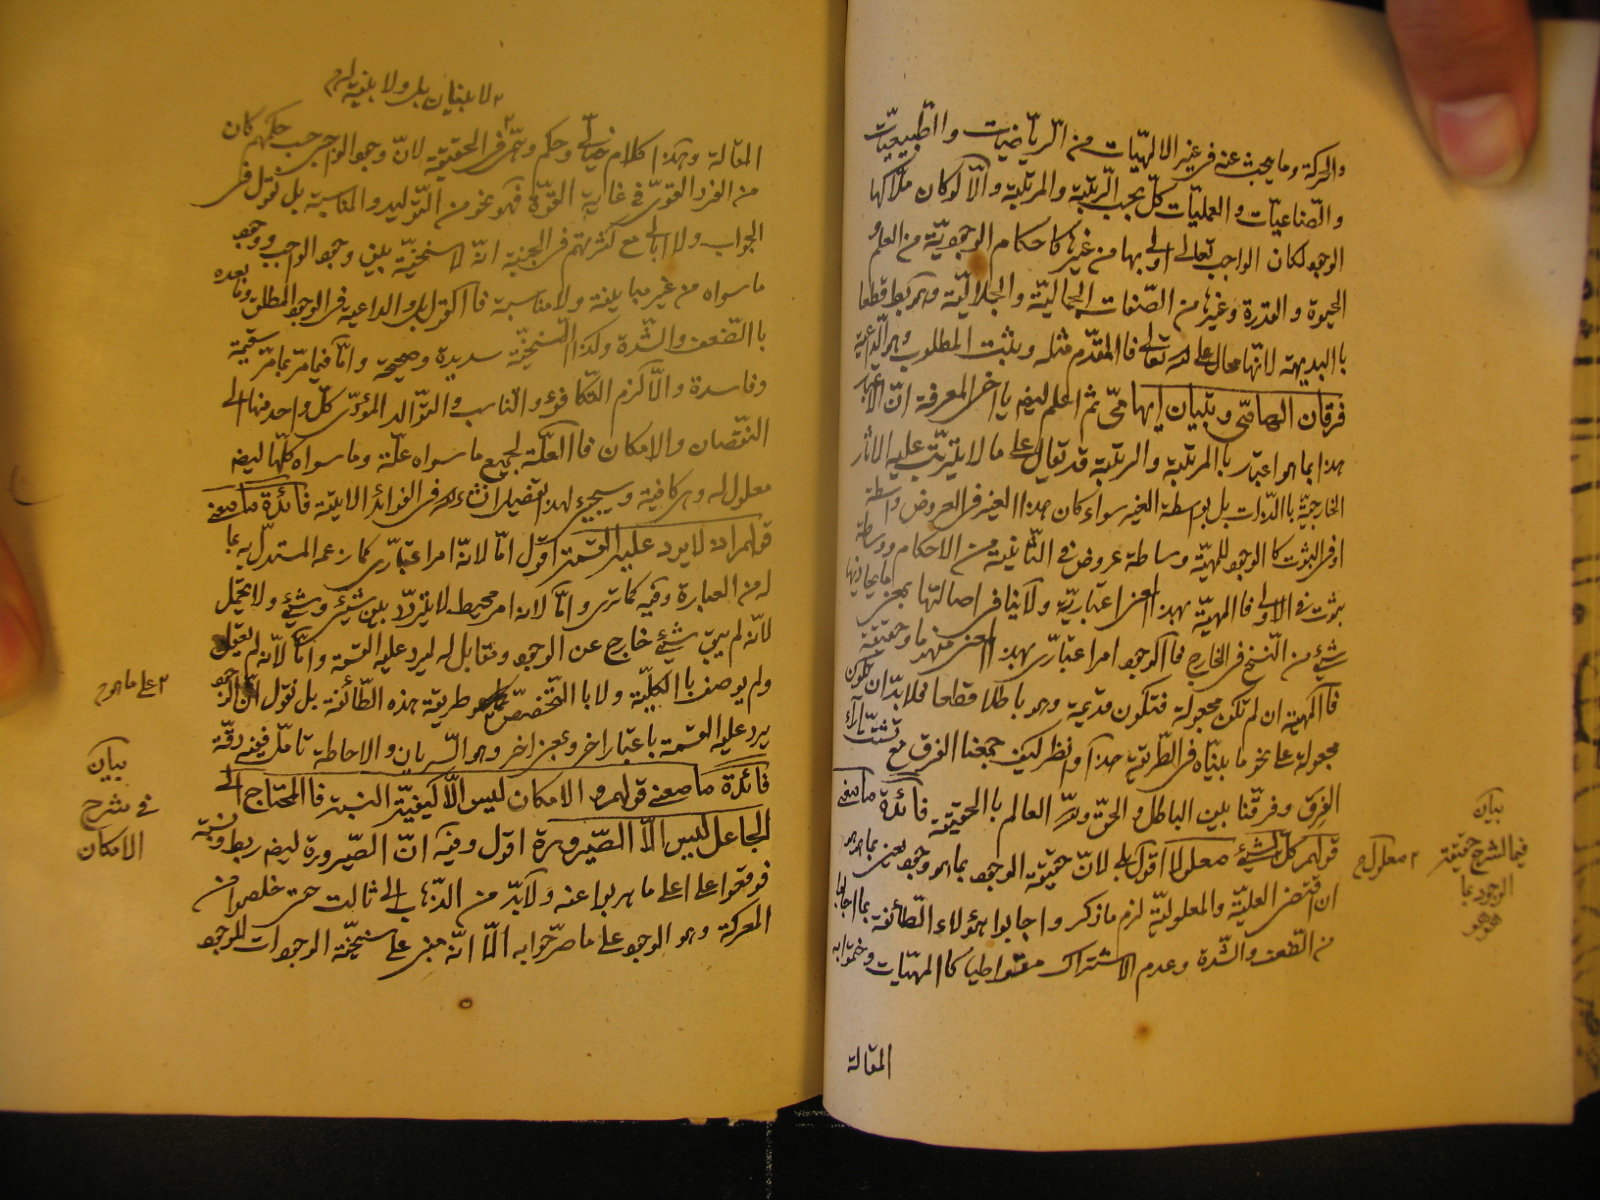 والحركة وما يبحث عنه في غير الالهيّات من الرّياضيّات والطّبيعيّات
والصّناعيّات والعمليّات كلّ بحسب الرّتبة والمرتبة والّا لو كان ملاكها
الوجود لكان الواجب تعالى اولى بها من غيرها كاحكام الوجوديّة من العلم و
الحيوة والقدرة وغيرها من الصّفات الجماليّة والجلاليّة وهو بط قطعا
با البديهة لانّها محال على له تعالى فا المقدّم مثله ويثبت المطلوب وهو الدّاعية
فرقان ثم اعلم ايضه يا اخى المعرفة انّ الاعتبار
هذا بما هو اعتبار با المرتبة والرتبة قد تقال على ما لا يترتّب عليه الاثار
الخارجيّة با الذّات بل بواسطة الغير سواء كان هذا الغير فى العروض واسطة
او فى الثبوت كا الوجود للمهيّة وساطة عروض فى الثّانية من الاحكام ووساطة
ثبوت فى الاولى فا المهيّة بهذا المعنى اعتباريّة ولا ينافى اصالتها بمعنى ما يحاذيها
شيئ من النّسخ فى الخارج فا الوجود امرا عتبارّى بهذا المعنى منهد ما وحقيقة
فا المهية ان لم تكن مجعولة فتكون قديمة وهو باطلا قطعا فلا بدّ ان تكون
مجعولة على نحو ما بيّناه فى الطّريقة هذا وانظر كيف جمعنا الفرق مع تشتّت آراء
الفِرق وفرقّنا بين الباطل والحق وللّه العالم با الحقيقة فائدة ما معنى
قولهم كلّ الشيئ معلولا اقول بلى لانّ حقيقة الوجود بما هو وجود يعنى بما هو هو
ان اقتضى العليّة والمعلوليّة لزم ما ذكر واجابوا هؤلاء الطّائفة بما اجابوا
من الضّعف والشّدة وعدم الاشتراك متواطيا كا المهيّات وختموا به
المقالة
بيان
فيما لشرح حقيقة
الوجود بما
هو هو
٢ معلول م
٢ لا بينيان بل ولا بينية له م
المقالة وهذا كلام خيالّى وحكم وهمّى فى الحقيقة لانّ وجود الواجب حسب حكمهم كان
من الفرد القوىّ فى غاية القوّة فهو نحو من التّوليد والمناسبة بل نقول فى
الجواب ولا ابالى مع كثرتهم فى الجنبة انّه لا سنخيّة بين وجود الواجب ووجود
ما سواه من غير مباينة ولا مناسبة فا القول بل والداعية فى الوجود المطلق وما بعده
با الضّعف والشّدة ولذا السّنخيّة سديدة وصحيحة وامّا فيما مرّ بما مرّ سقيمة
وفاسدة والّا لزم التّكافوء والتّناسب والتّوالد المؤدّى كلّ واحد منها الى
النّقصان والامكان فا العلّة لجميع ما سواه علّة وما سواه كلّها ايضه
معلول له وهى كافية وسيجيئ لهذا تفصيل انشاء له فى الفوائد الاتية فائدة ما معنى
قولهم انّه لا يرد عليه القسمة اقول امّا لانّه امرا عتبارّى كما زعمه المستدل به بما
له من العبارة وفيه كما ترى وامّا لانه امر محيط لا يتردّد بين شيئ وشيئ ولا يتخيّل
لانّه لم يبق شيئ خارج عن الوجود ومقابل له ليرد عليه القسمة وامّا لانّه لم يعقل
ولم يوصف با الكليّة ولا با التّخصّص كما هو طريقة هذه الطّائفة بل نقول انّ الوجود
يرد عليه القسمة باعتبار اخر وبمعنى اخر وهو السّريان والاحاطة تامّل ففيه دقّة
فائدة ما معنى قولهم والامكان ليس الّا كيفيّة النسبة فا المحتاج الى
الجاعل ليس الّا الصّيرورة اقول وفيه انّ الصّيرورة ايضه ربط ونسبة
فوقعوا على اعلى ما هربوا عنه ولا بدّ من الذّهاب الى ثالث حتى خلصوا من
المعركة وهو الوجود على ما صرّحوا به امّا انّه مبنى على سنخيّة الوجودات للوجود
٢ على ما هو م
بيان
فى شرح
الامكان